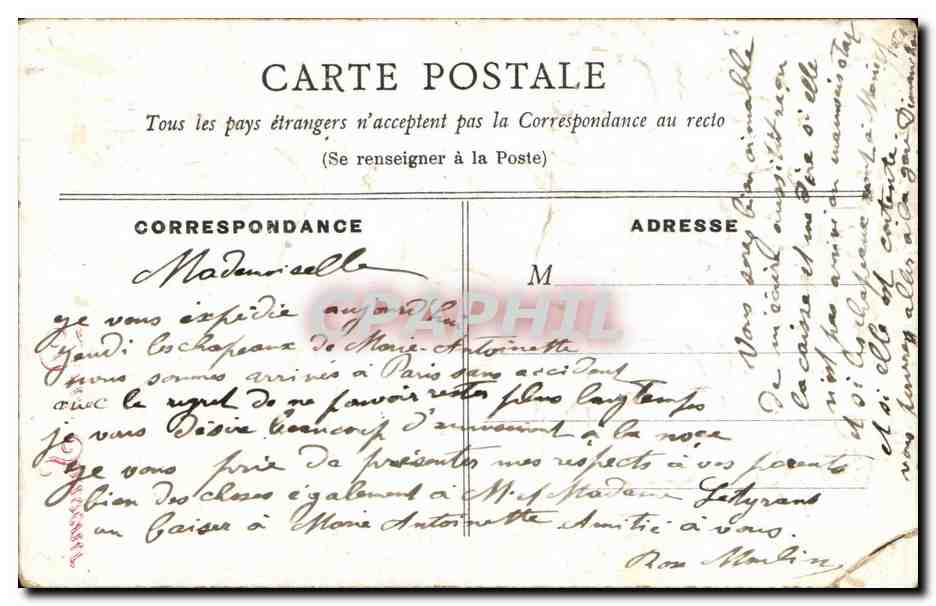 CARTE POSTALE
Tous les pays étrangers n'acceptent pas la Correspondance au recto
(Se renseigner à la Poste)
CORRESPONDANCE
ADRESSE
M
Mademoiselle
je vous expédie aujourd'hui
jeudi les chapeaux de Marie-Antoinette
nous sommes arrivés à Paris sans accident
avec le regret de ne pouvoir rester plus longtemps
je vous désire beaucoup d'amusement à la noce
je vous prie de présenter mes respects à vos parents
bien des choses également à M. et Madame Letyrant
un baiser à Marie Antoinette Amitié à vous
Rose
Vous serez bien aimable
de m'écrire aussitôt reçu
la caisse et me dire si elle
n'est pas arrivé en mauvais état
et si les chapeaux vont à Marie
et si elle est contente
vous pourrez aller à la gare Dimanche
CPAPHIL